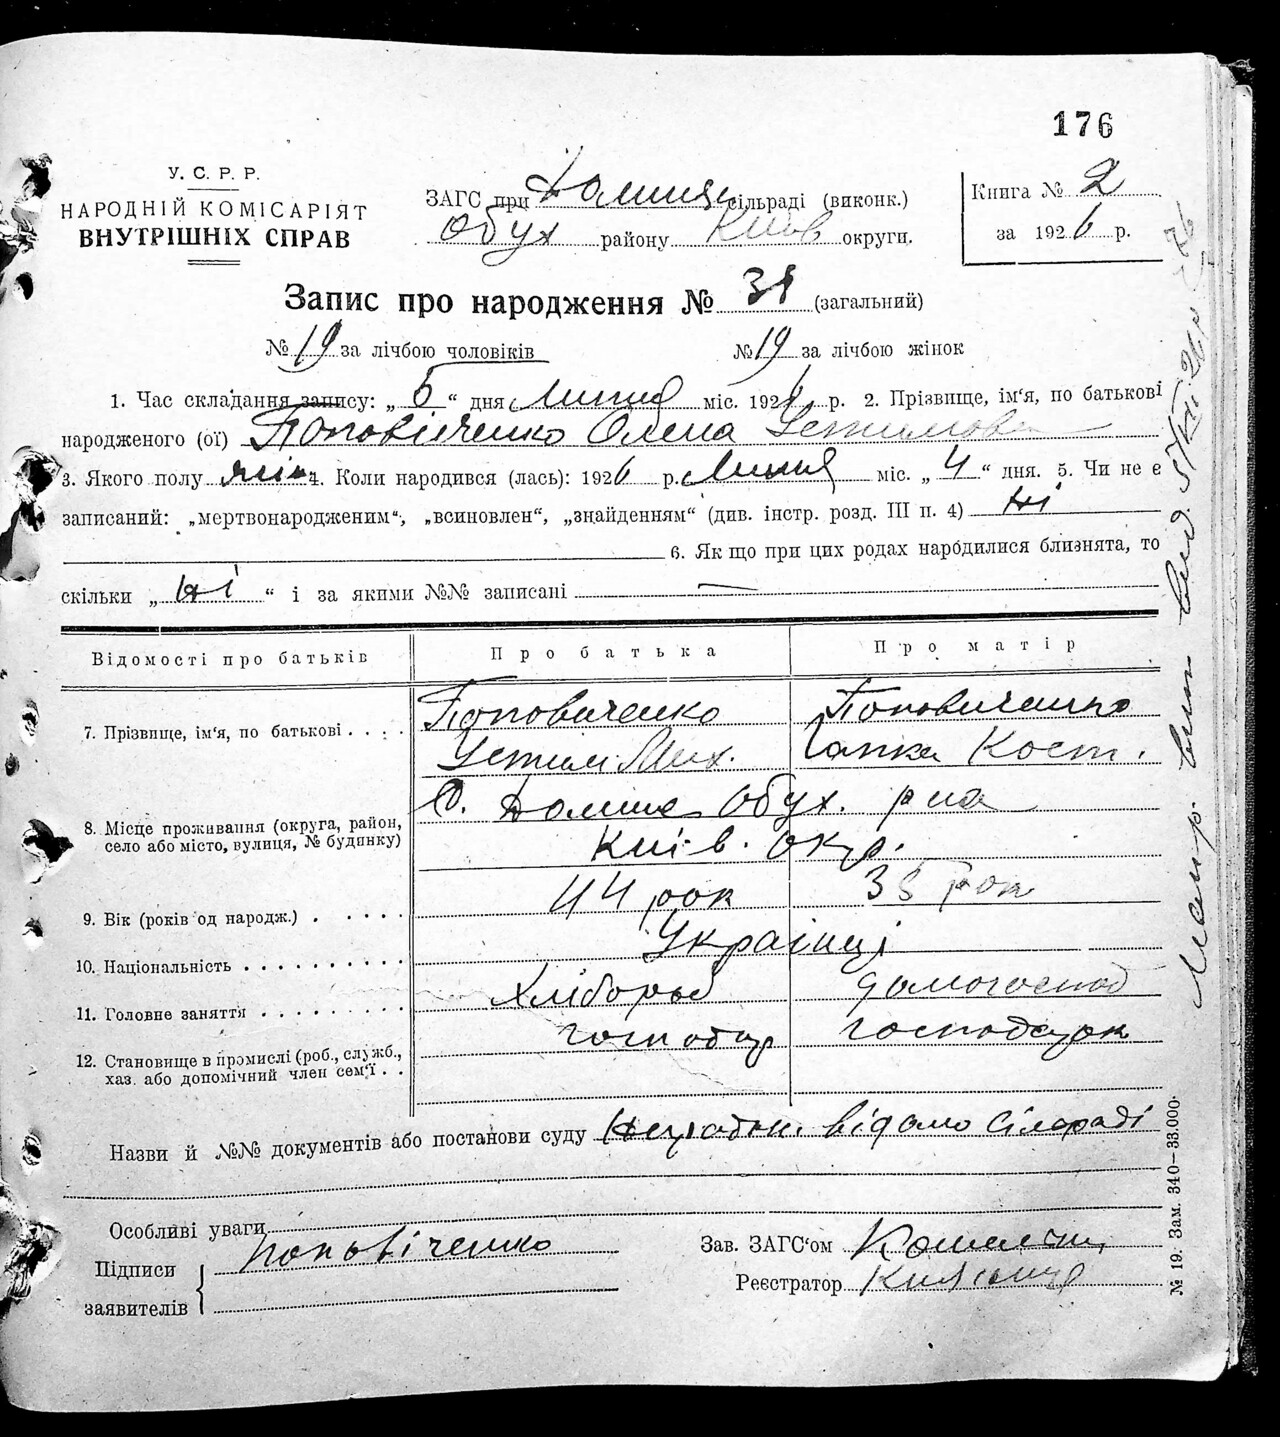 176
У. С. Р. Р.
НАРОДНІЙ КОМІСАРІЯТ
ВНУТРІШНІХ СПРАВ
ЗАГС при сільраді (виконк.)
Обух району Київ округи.
Книга № 2
за 1926 р.
Запис про народження № (загальний)
№ 19 за лічбою чоловіків
№ 19 за лічбою жінок
1. Час складання запису: „ 5 “ дня Липня міс. 1926 р. 2. Прізвище, ім‘я, по батькові
народженого (ої) Поповіченко Олена Устимова
3. Якого полу жін 4. Коли народився (лась): 1926 р. Липня міс. „ 4 “ дня. 5. Чи не є
записаний: „мертвонародженим“, „всиновлен“, „знайденням“ (див. інстр. розд. III п. 4) ні
6. Як що при цих родах народилися близнята, то
скільки „ ні “ і за якими №№ записані —
Відомості про батьків
Про батька
Про матір
7. Прізвище, ім‘я, по батькові . . . .
Поповиченко
Устим Мих.
Поповиченко
Кост.
8. Місце проживання (округа, район,
село або місто, вулиця, № будинку)
С. Обух. р на
Київ. окр.
9. Вік (років од народж.) . . . . .
44 рок
35 рок
10. Національність . . . . . . . . . .
Українці
11. Головне заняття . . . . . . . . .
Хлібороб
домогоспод
12. Становище в промислі (роб., служб.,
хаз. або допомічний член сем‘ї . .
господар
Назви й №№ документів або постанови суду відомо сілораді
Особливі уваги
Підписи
заявителів
поповіченко
Зав. ЗАГС‘ом
Реєстратор
№ 19. Зам. 340—33.000.